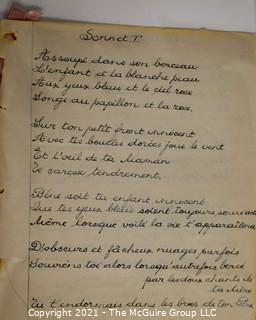 Sonnet I
Assoupi dans son berceau
L'enfant à la blanche peau
Aux yeux bleus et le ciel rose
Songe au papillon et la rose.
Sur ton petit front innocent
Avec tes boucles dorées joue le vent
Et l'oeil de ta Maman
Te caresse tendrement.
Béni soit tu enfant innocent
Que tes yeux bleus soient toujours souriants
Même lorsque voilà la vie t'apparaîtra
D'obscurs et fâcheux nuages parfois
Souviens toi alors lorsqu'autrefois bercé
par les doux chants de
la Mère
Tu t'endormais dans les bras de ton Père
Copyright 2021 - The McGuire Group, LLC